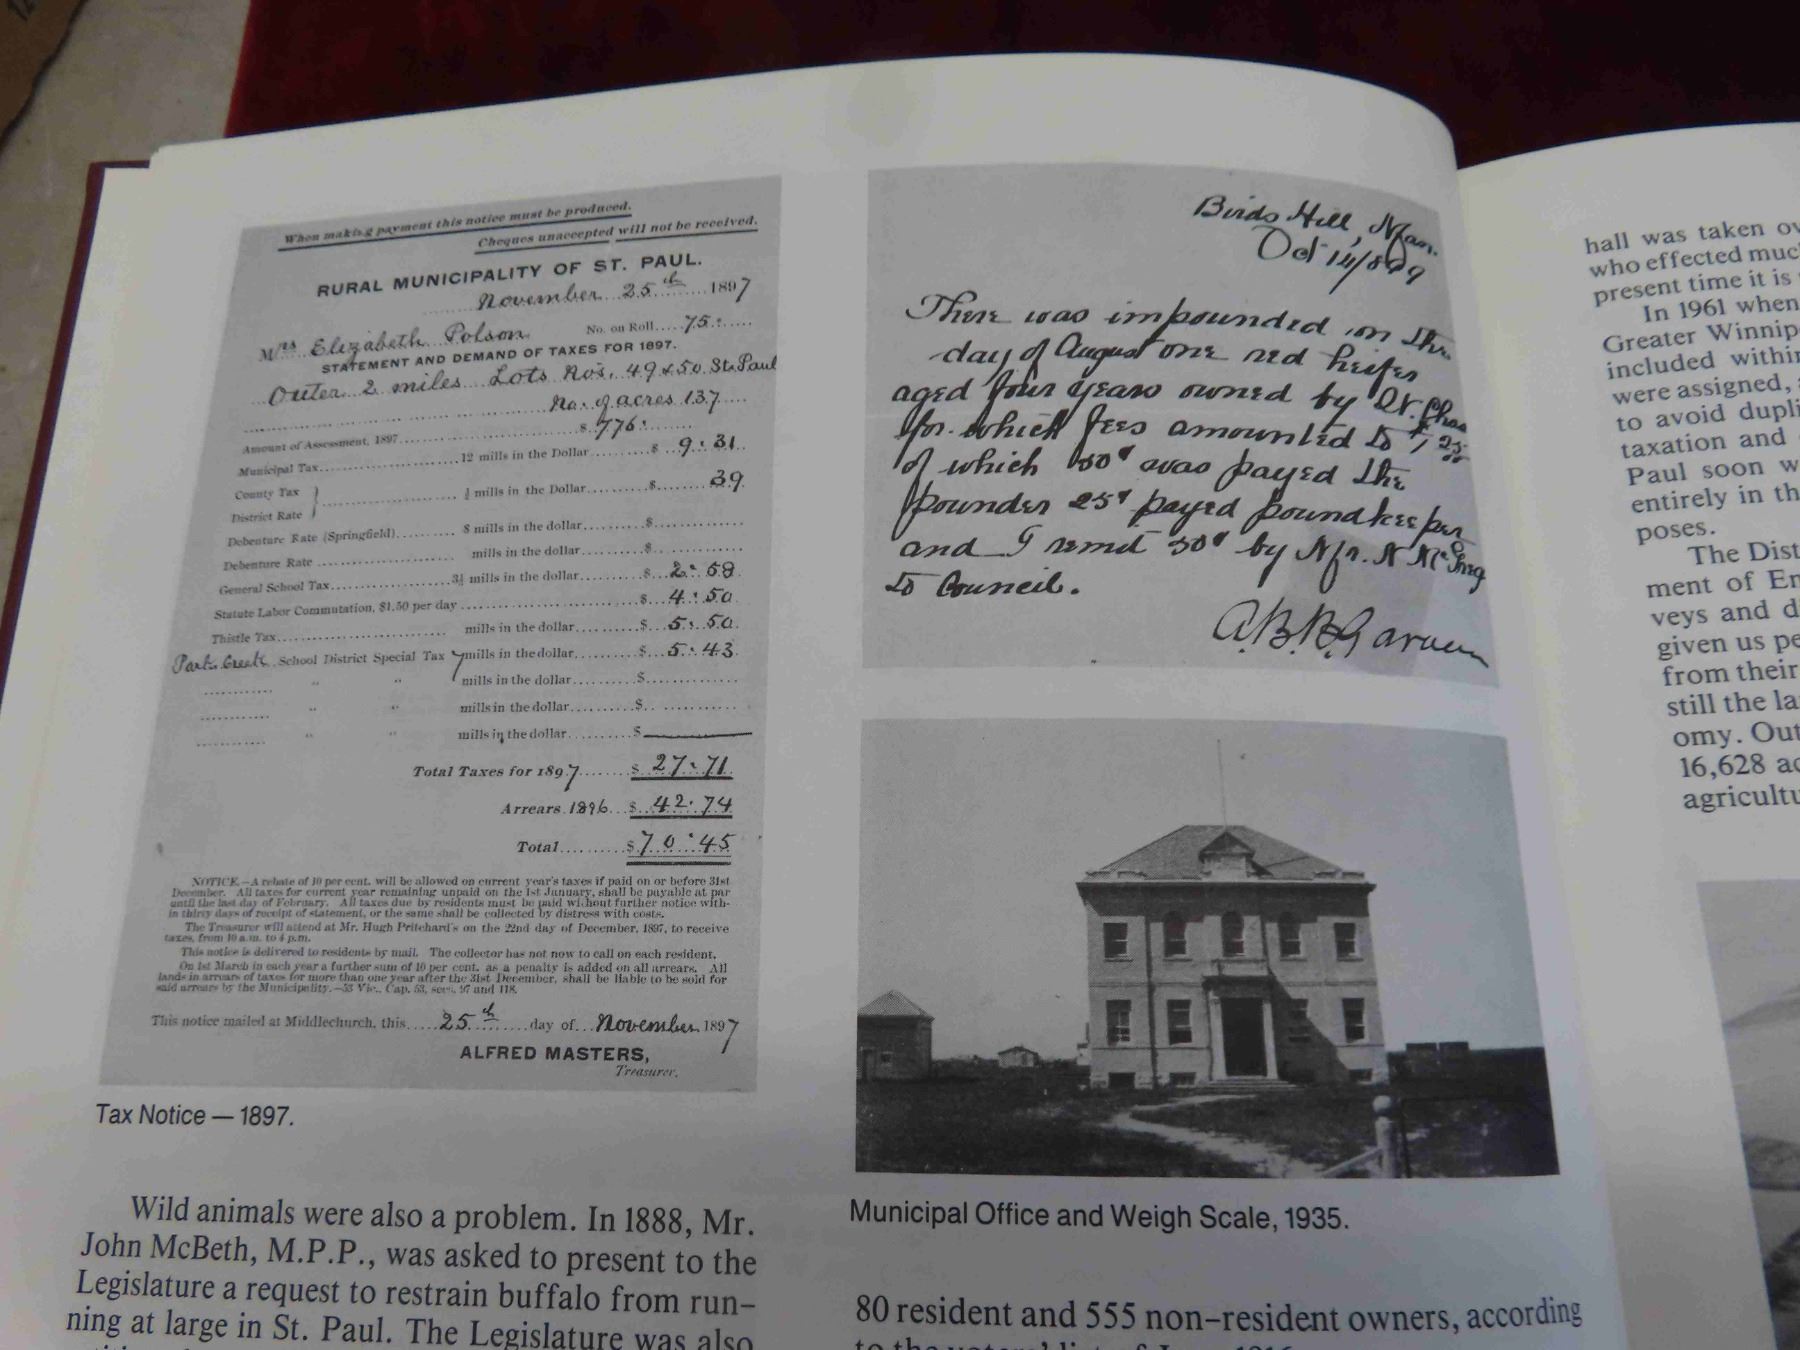 When making payment this notice must be produced.
Cheques unaccepted will not be received.
RURAL MUNICIPALITY OF ST. PAUL.
November 25th 1897
Mrs Elizabeth Polson No. on Roll 75
STATEMENT AND DEMAND OF TAXES FOR 1897.
Outer 2 miles Lots Nos. 49 & 50 St. Paul
No. of acres 137
Amount of Assessment, 1897 $ 776
Municipal Tax 12 mills in the Dollar $ 9.31
County Tax
District Rate } ½ mills in the Dollar $ 39
Debenture Rate (Springfield) 8 mills in the dollar $
Debenture Rate mills in the dollar $
General School Tax 3⅓ mills in the dollar $ 2.58
Statute Labor Commutation, $1.50 per day $ 4.50
Thistle Tax mills in the dollar $ 5.50
Park Creek School District Special Tax 7 mills in the dollar $ 5.43
" " mills in the dollar $
" " mills in the dollar $
" " mills in the dollar $
Total Taxes for 1897 $ 27.71
Arrears 1896 $ 42.74
Total $ 70.45
NOTICE.—A rebate of 10 per cent. will be allowed on current year's taxes if paid on or before 31st
December. All taxes for current year remaining unpaid on the 1st January, shall be payable at par
until the last day of February. All taxes due by residents must be paid without further notice with-
in thirty days of receipt of statement, or the same shall be collected by distress with costs.
The Treasurer will attend at Mr. Hugh Pritchard's on the 22nd day of December, 1897, to receive
taxes, from 10 a.m. to 4 p.m.
This notice is delivered to residents by mail. The collector has not now to call on each resident.
On 1st March in each year a further sum of 10 per cent. as a penalty is added on all arrears. All
lands in arrears of taxes for more than one year after the 31st December, shall be liable to be sold for
said arrears by the Municipality.—53 Vic., Cap. 53, secs. 97 and 118.
This notice mailed at Middlechurch, this 25th day of November 1897
ALFRED MASTERS,
Treasurer.
Tax Notice — 1897.
Wild animals were also a problem. In 1888, Mr.
John McBeth, M.P.P., was asked to present to the
Legislature a request to restrain buffalo from run-
ning at large in St. Paul. The Legislature was also
Birds Hill, Man.
Oct 14/899
There was impounded on the
day of August one red heifer
aged four years owned by
for which fees amounted to
of which 50¢ was payed the
pounder 25¢ payed poundkeeper
and I remit 50¢ by Mr. N
to Council.
Municipal Office and Weigh Scale, 1935.
80 resident and 555 non-resident owners, according
hall was taken ov
who effected muc
present time it is
In 1961 when
Greater Winnip
included within
were assigned,
to avoid dupli
taxation and
Paul soon w
entirely in th
poses.
The Dist
ment of En
veys and d
given us pe
from their
still the la
omy. Out
16,628 ac
agricultu